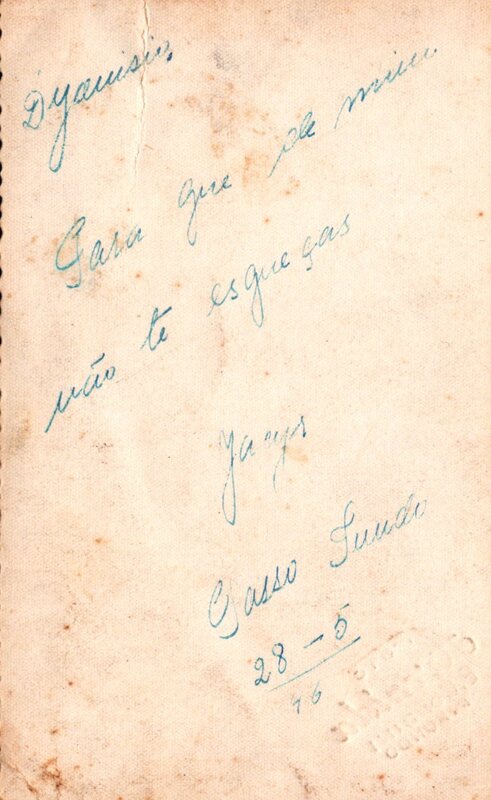 Dyonisio,
Para que de mim
não te esqueças
Jacyr
Passo Fundo
28-5
46